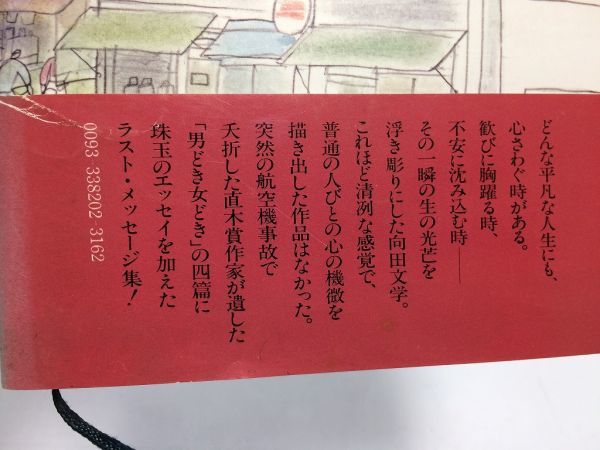 どんな平凡な人生にも、
心さわぐ時がある。
歓びに胸躍る時、
不安に沈み込む時──
その一瞬の生の光芒を
浮き彫りにした向田文学。
これほど清冽な感覚で、
普通の人びとの心の機微を
描き出した作品はなかった。
突然の航空機事故で
夭折した直木賞作家が遺した
「男どき女どき」の四篇に
珠玉のエッセイを加えた
ラスト・メッセージ集!
0093 338202 3162